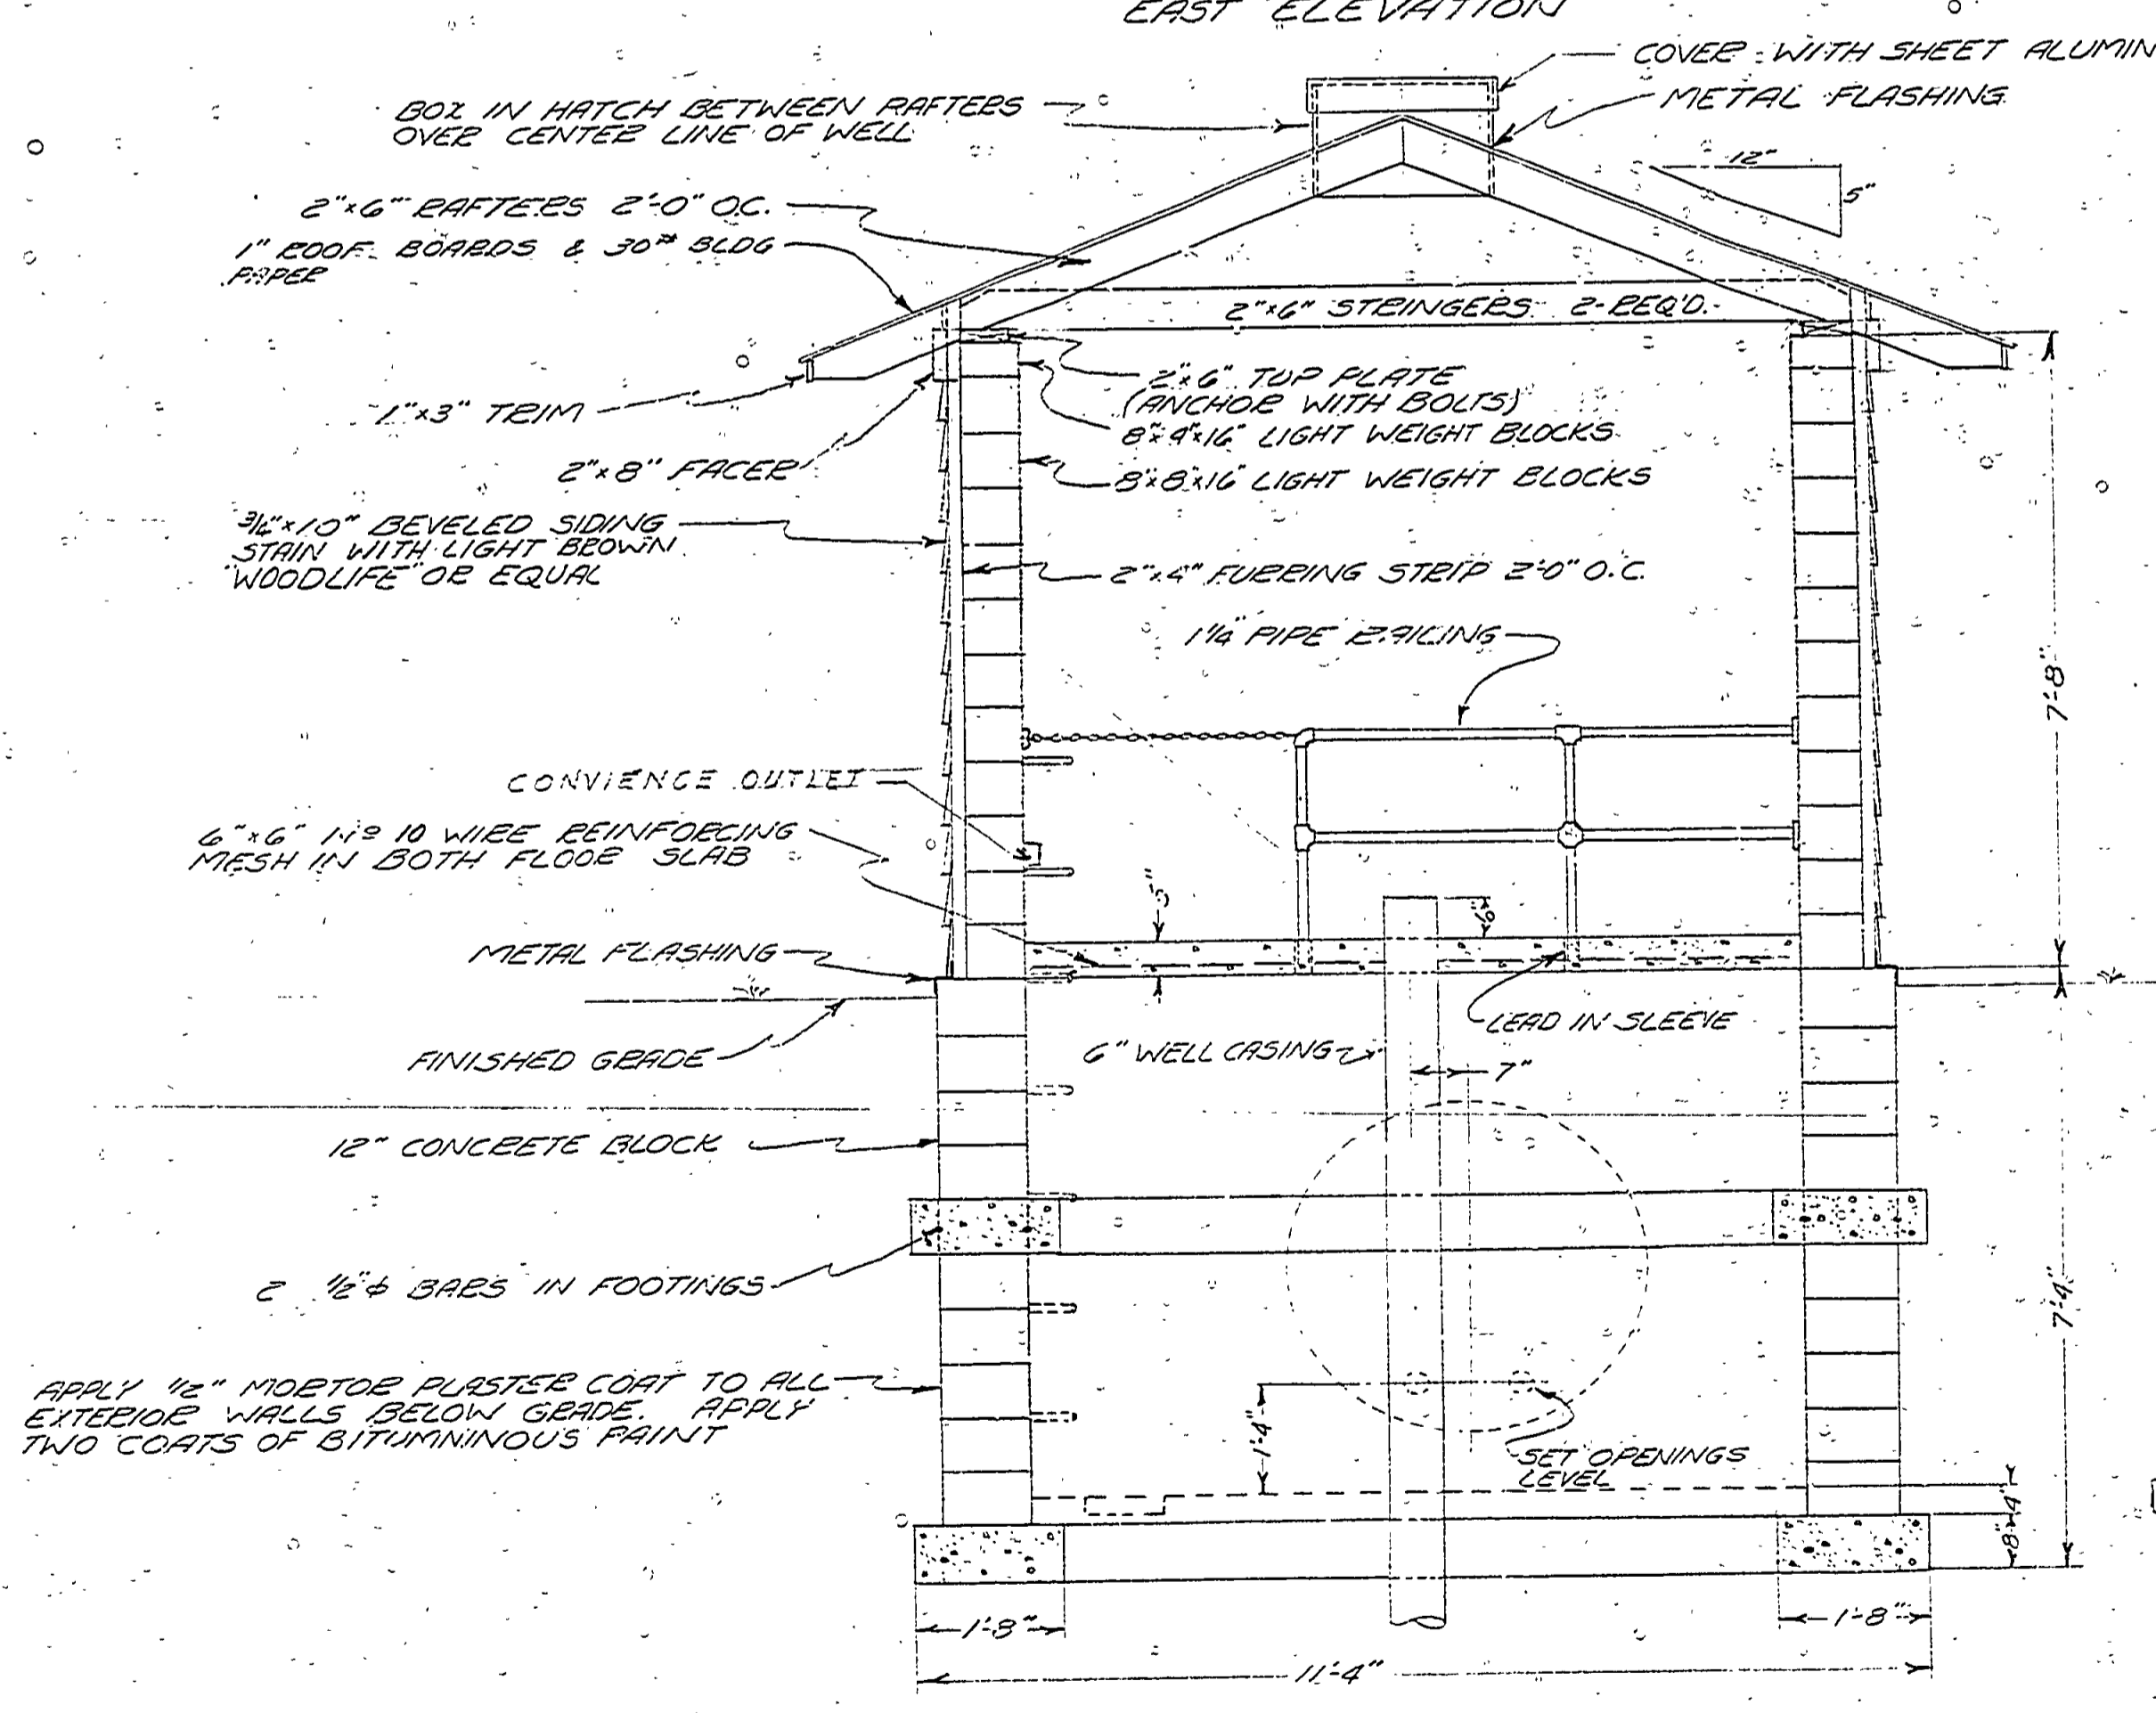 EAST ELEVATION
COVER WITH SHEET ALUMIN
METAL FLASHING
BOX IN HATCH BETWEEN RAFTERS
OVER CENTER LINE OF WELL
12"
5"
2"x6" RAFTERS 2'-0" O.C.
1" ROOF BOARDS & 30# BLDG
PAPER
2"x6" STRINGERS 2-REQ'D.
1"x3" TRIM
2"x6" TOP PLATE
(ANCHOR WITH BOLTS)
8"x4"x16" LIGHT WEIGHT BLOCKS
2"x8" FACER
8"x8"x16" LIGHT WEIGHT BLOCKS
3/4"x10" BEVELED SIDING
STAIN WITH LIGHT BROWN
"WOODLIFE" OR EQUAL
2"x4" FURRING STRIP 2'-0" O.C.
1 1/4" PIPE RAILING
7'-8"
CONVIENCE OUTLET
6"x6" No 10 WIRE REINFORCING
MESH IN BOTH FLOOR SLAB
5"
6"
METAL FLASHING
LEAD IN SLEEVE
FINISHED GRADE
6" WELL CASING
7"
12" CONCRETE BLOCK
2 1/2"ϕ BARS IN FOOTINGS
7'-4"
APPLY 1/2" MORTOR PLASTER COAT TO ALL
EXTERIOR WALLS BELOW GRADE. APPLY
TWO COATS OF BITUMNINOUS PAINT
1'-4"
SET OPENINGS
LEVEL
8"
4"
1'-8"
1'-8"
11'-4"